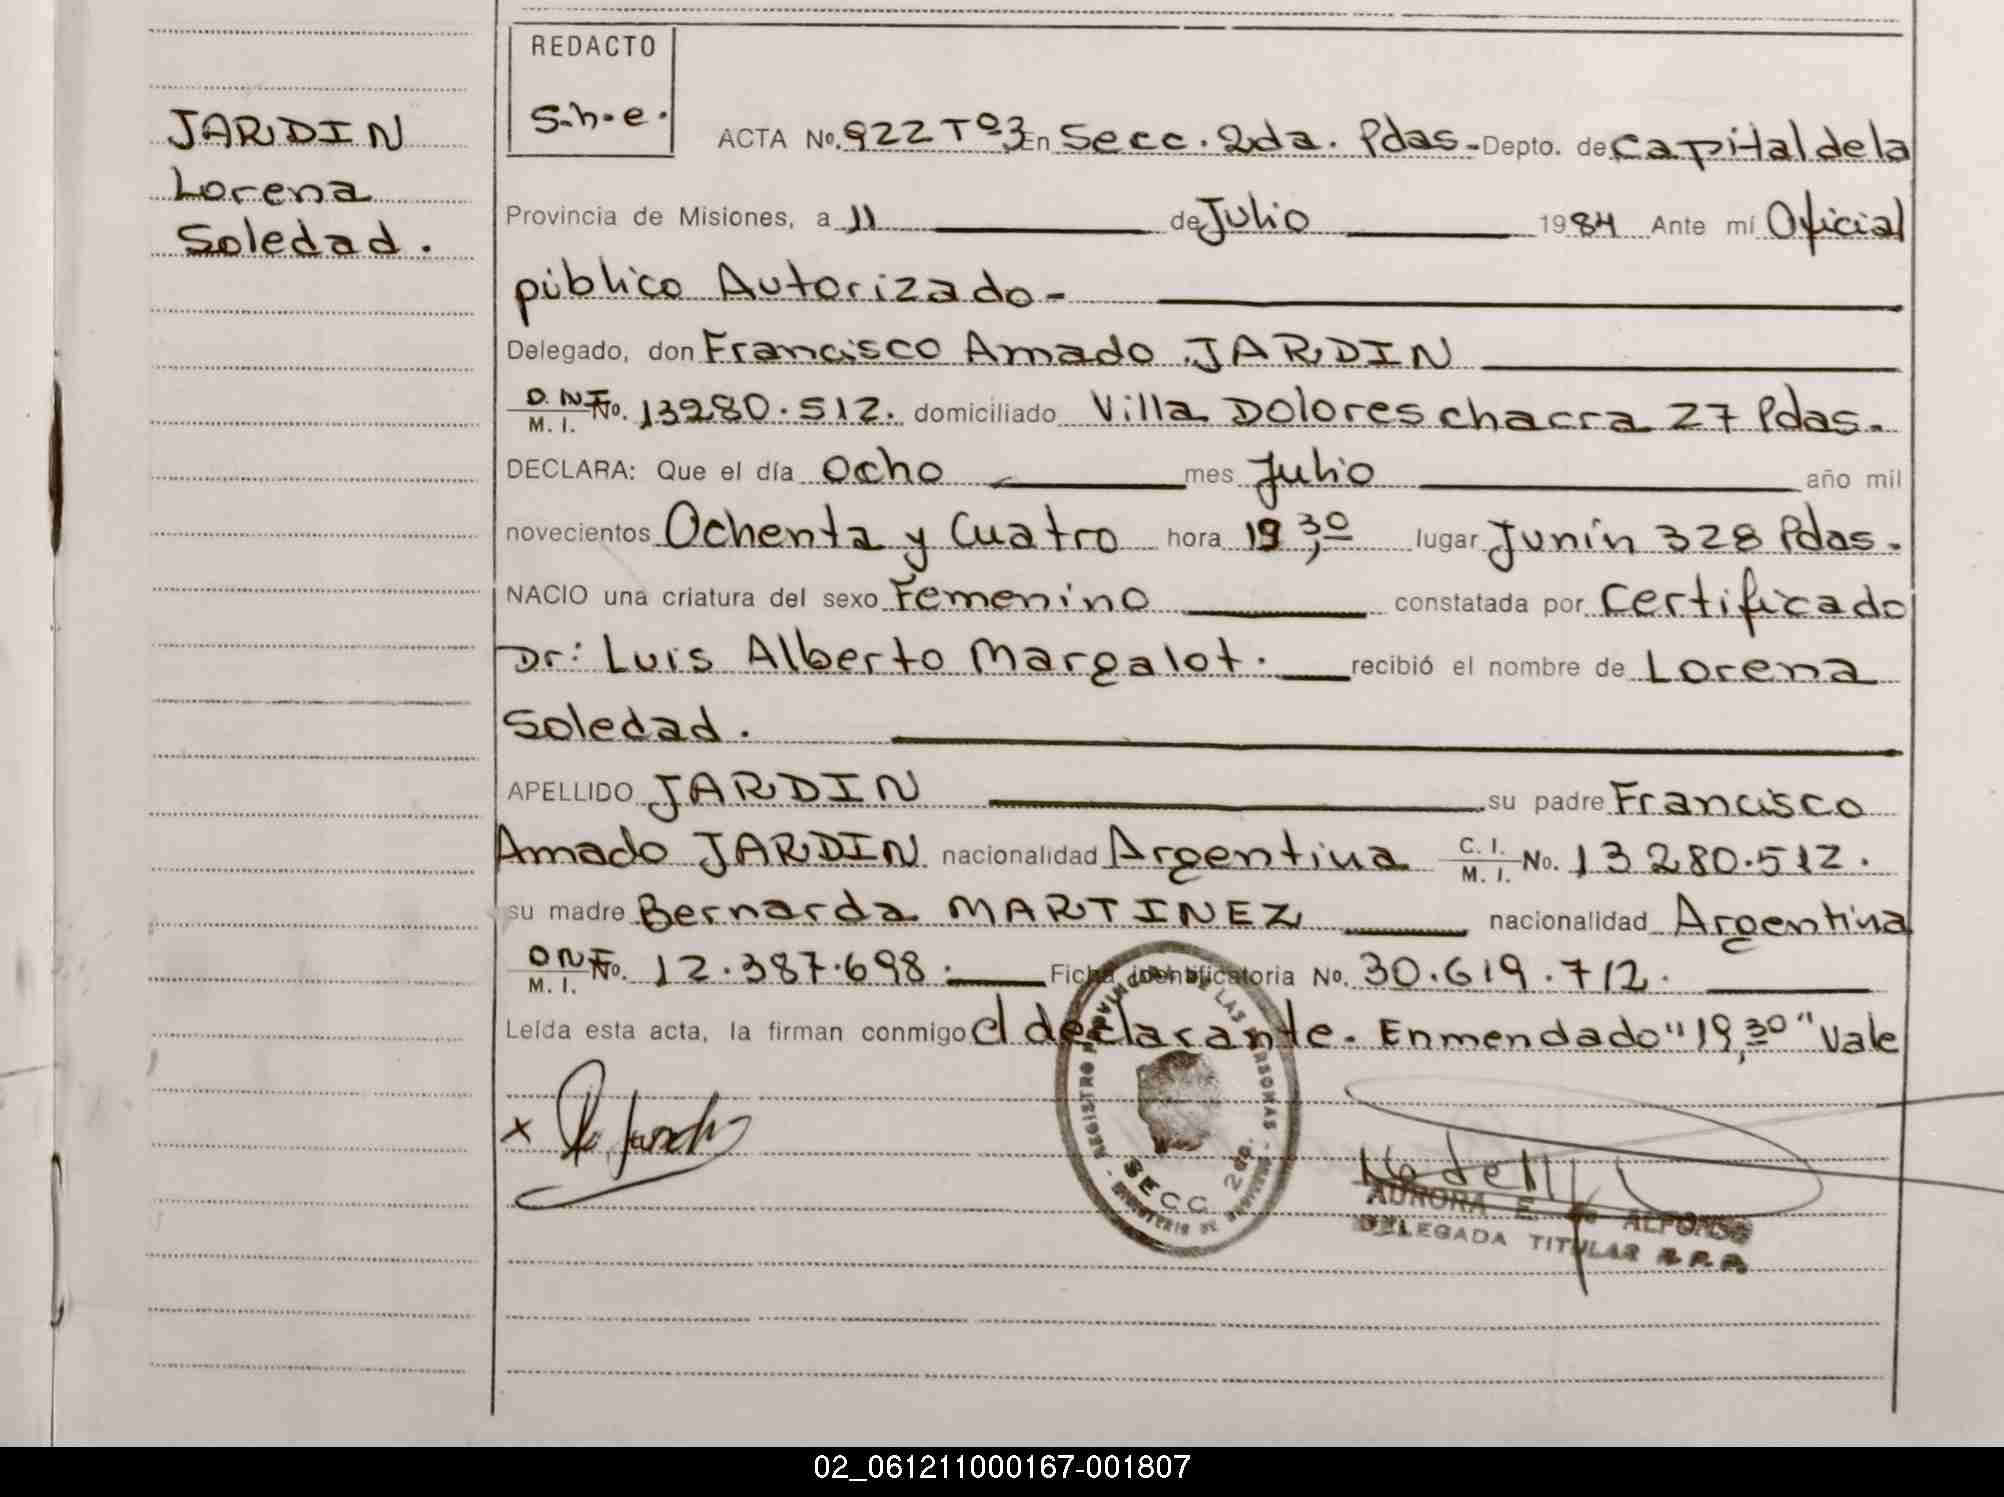 REDACTO
S.h.e.
JARDIN
Lorena
Soledad.
ACTA No. 922 Tº3 En Secc. 2da. Pdas. Depto. de Capital de la
Provincia de Misiones, a 11 de Julio 1984 Ante mí Oficial
público Autorizado-
Delegado, don Francisco Amado JARDIN
D.N.I. M. I. No. 13280.512. domiciliado Villa Dolores chacra 27 Pdas.
DECLARA: Que el día Ocho mes Julio año mil
novecientos Ochenta y Cuatro hora 19,30 lugar Junín 328 Pdas.
NACIO una criatura del sexo Femenino constatada por Certificado
Dr: Luis Alberto Margalot. recibió el nombre de Lorena
Soledad.
APELLIDO JARDIN su padre Francisco
Amado JARDIN nacionalidad Argentina C. I. M. I. No. 13280.512.
su madre Bernarda MARTINEZ nacionalidad Argentina
DNI M. I. No. 12.387.698. Ficha identificatoria No. 30.619.712.
Leída esta acta, la firman conmigo el declarante. Enmendado "19,30" Vale
x
REGISTRO PROVINCIAL DE LAS PERSONAS
SECC. 2da.
AURORA E. de ALFONSO
DELEGADA TITULAR R.P.P.
02_061211000167-001807